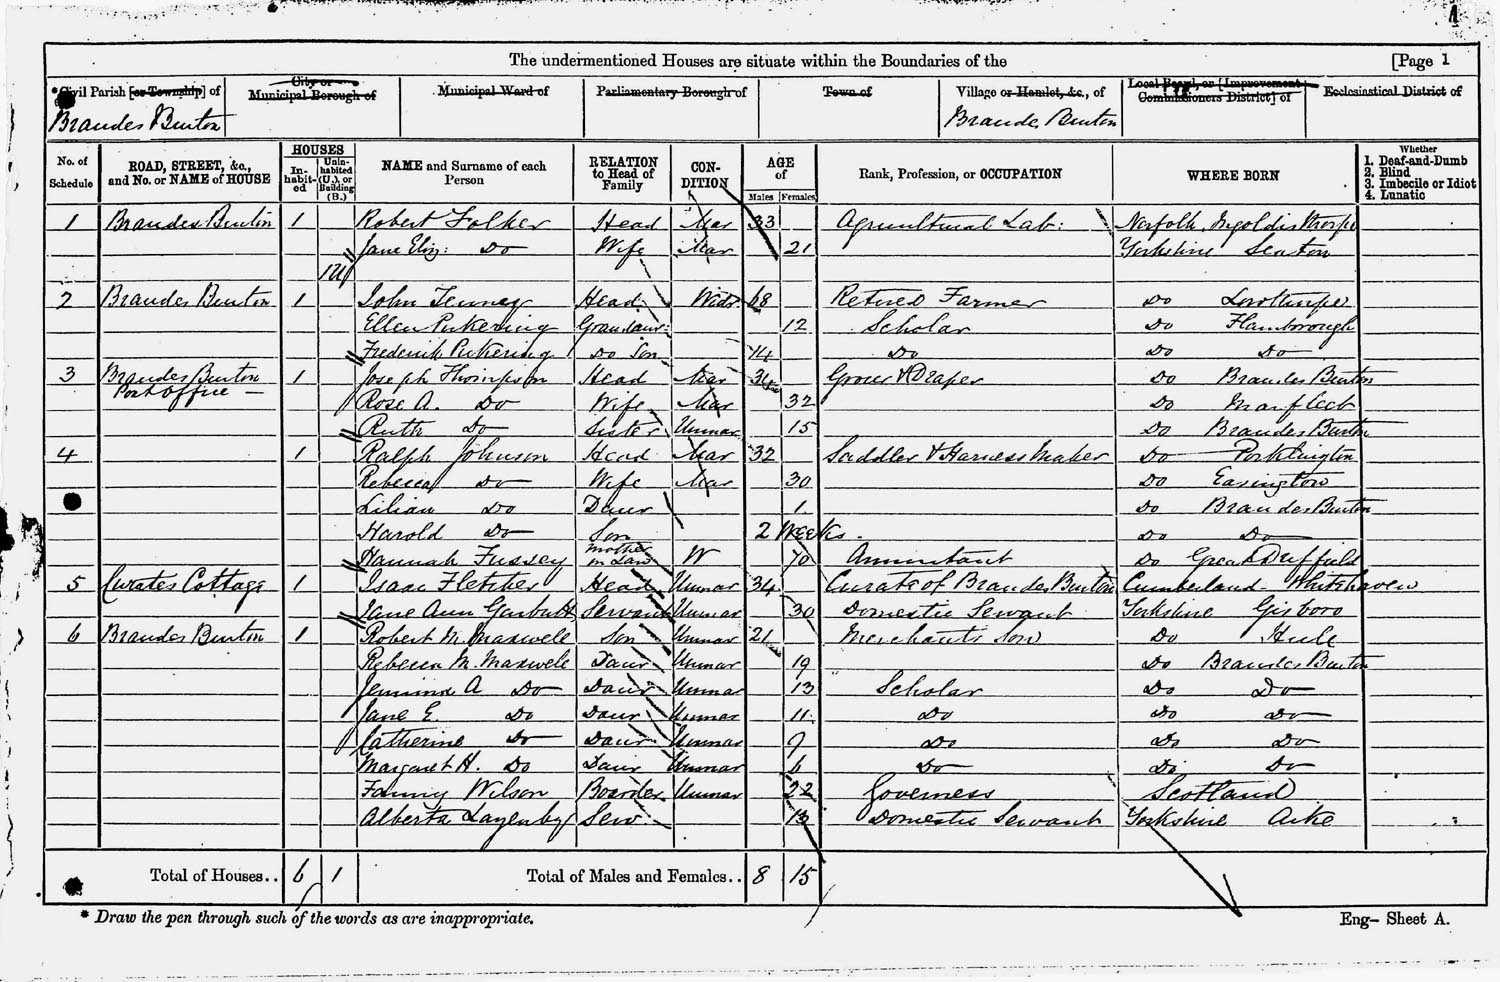 The undermentioned Houses are situate within the Boundaries of the [Page 1
*Civil Parish [or Township] of City or Municipal Borough of Municipal Ward of Parliamentary Borough of Town of Village or Hamlet, &c., of Local Board, or [Improvement Commissioners District] of Ecclesiastical District of
Brandes Burton Brandes Burton
No. of Schedule ROAD, STREET, &c., and No. or NAME of HOUSE HOUSES Inhabited Uninhabited (U.), or Building (B.) NAME and Surname of each Person RELATION to Head of Family CONDITION AGE of Males Females Rank, Profession, or OCCUPATION WHERE BORN Whether 1. Deaf-and-Dumb 2. Blind 3. Imbecile or Idiot 4. Lunatic
1 Brandes Burton 1 Robert Folker Head Mar 33 Agricultural Lab: Norfolk Ingoldisthorpe
Jane Eliz: Do Wife Mar 21 Yorkshire Seaton
1U
2 Brandes Burton 1 John Tenney Head Widr 68 Retired Farmer Do Lowthorpe
Ellen Pickering Grandaur: 12 Scholar Do Flamborough
Frederick Pickering Do Son 14 Do Do Do
3 Brandes Burton Post office — 1 Joseph Thompson Head Mar 34 Grocer & Draper Do Brandes Burton
Rose A. Do Wife Mar 32 Do Marfleet
Ruth Do Sister Unmar 15 Do Brandes Burton
4 1 Ralph Johnson Head Mar 32 Saddler & Harness Maker Do Pocklington
Rebecca Do Wife Mar 30 Do Easington
Lilian Do Daur 1 Do Brandes Burton
Harold Do Son 2 Weeks. Do Do
Hannah Fussey Mother in Law W 70 Annuitant Do Great Driffield
5 Curates Cottage 1 Isaac Fletcher Head Unmar 34 Curate of Brandes Burton Cumberland Whitehaven
Jane Ann Garbutt Servant Unmar 30 Domestic Servant Yorkshire Gisboro
6 Brandes Burton 1 Robert M. Maxwell Son Unmar 21 Merchants Son Do Hull
Rebecca M. Maxwell Daur Unmar 19 Do Brandes Burton
Jemima A Do Daur Unmar 13 Scholar Do Do
Jane E. Do Daur Unmar 11 Do Do Do
Catherine Do Daur Unmar 9 Do Do Do
Margaret H. Do Daur Unmar 6 Do Do Do
Fanny Wilson Boarder Unmar 22 Governess Scotland
Alberta Lazenby Serv. 13 Domestic Servant Yorkshire Aike
Total of Houses.. 6 1 Total of Males and Females.. 8 15
* Draw the pen through such of the words as are inappropriate. Eng- Sheet A.